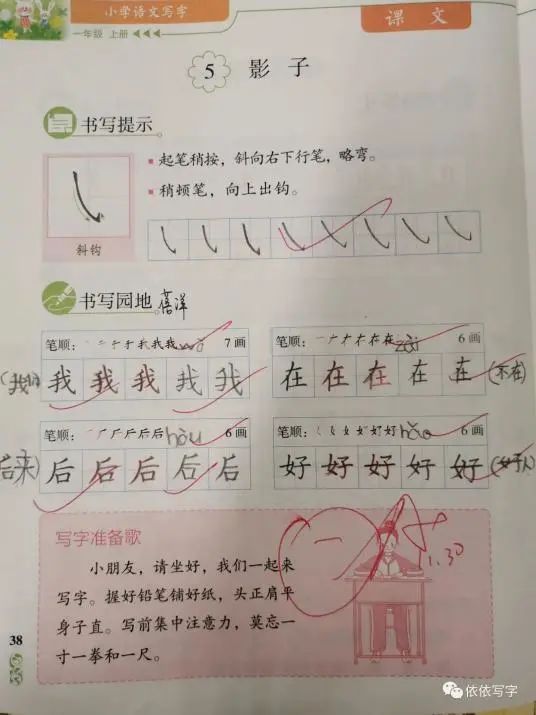 小学语文写字
一年级 上册
课文
5 影子
书写提示
起笔稍按，斜向右下行笔，略弯。
稍顿笔，向上出钩。
斜钩
书写园地
笔顺： 7画
笔顺： 在 zài 6画
我 我 我 我 我
在 在 在 在 在 (不在)
笔顺： 后 hòu 6画
笔顺： 好 hǎo 6画
后来 后 后 后 后 后
好 好 好 好 好 (好人)
写字准备歌
小朋友，请坐好，我们一起来
写字。握好铅笔铺好纸，头正肩平
身子直。写前集中注意力，莫忘一
寸一拳和一尺。
1.30
38
依依写字